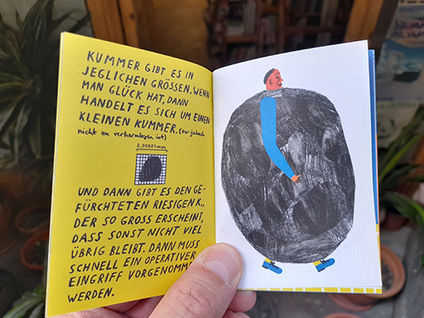 KUMMER GIBT ES IN
JEGLICHEN GRÖSSEN. WENN
MAN GLÜCK HAT, DANN
HANDELT ES SICH UM EINEN
KLEINEN KUMMER. (der jedoch
nicht zu verharmlosen ist)
0,00001mm
UND DANN GIBT ES DEN GE-
FÜRCHTETEN RIESIGEN K.,
DER SO GROSS ERSCHEINT,
DASS SONST NICHT VIEL
ÜBRIG BLEIBT. DANN MUSS
SCHNELL EIN OPERATIVER
EINGRIFF VORGENOMM
WERDEN.